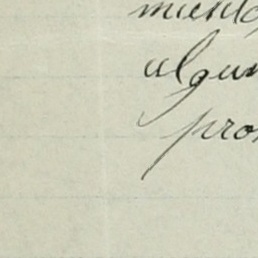 miento
algun
pro